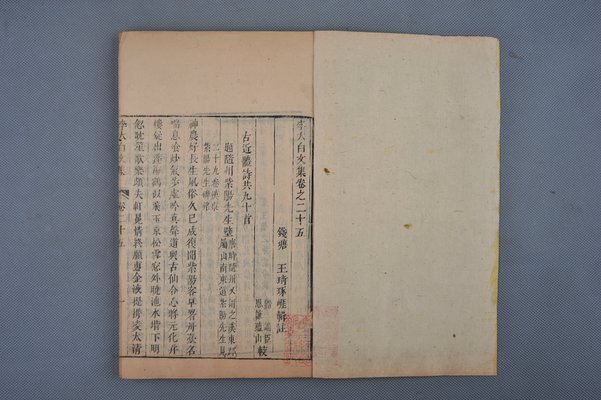 李太白文集卷之二十五
錢塘 王琦琢崖輯註
思謙蘊山 較
古近體詩共九十首
題隨州紫陽先生壁
神農好長生風俗久已成復聞紫陽客早署丹臺名
喘息飡妙氣步虛吟真聲道與古仙合心將元化并
樓疑出蓬海鶴似飛玉京松雪窗外曉池水階下明
忽耽笙歌樂頗失軒冕情終願惠金液提攜凌太清
李太白文集 卷二十五